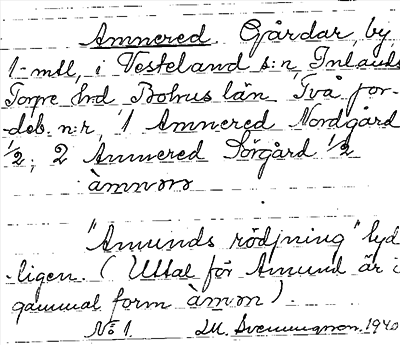 Amnered. Gårdar, by
1 mtl, i Vesteland s:n, Inlands
Torpe hrd Bohus län. Två jor-
deb. n:r, 1 Amnered Nordgård
1/2, 2 Amnered Sörgård 1/2
àmnərə
"Amunds rödjning" tyd-
ligen. (Uttal för Amund är i
gammal form àmən).
No 1. M. Svenungson. 1940